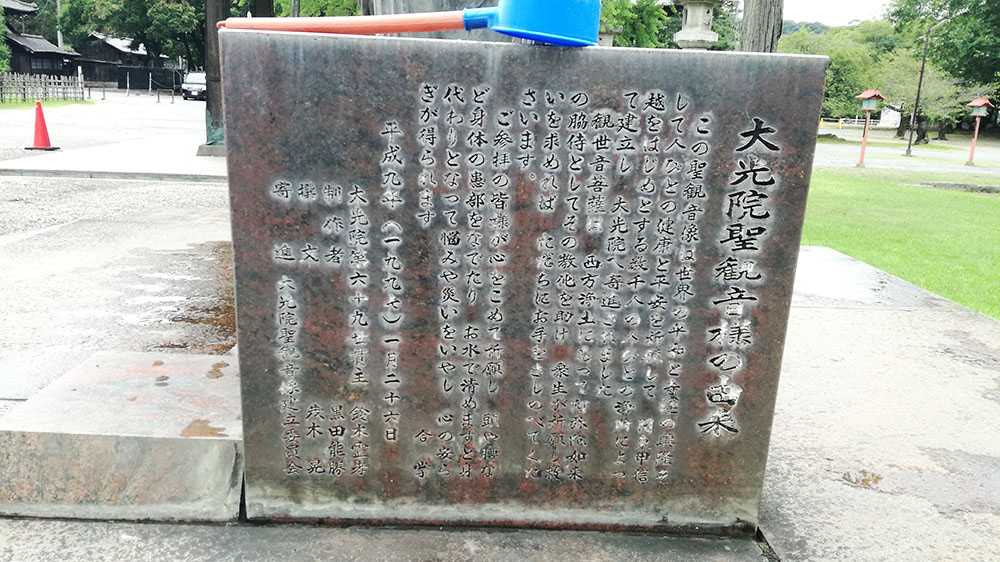 大光院聖観音様の由来
この聖観音像は世界の平和と
して人びとの健康と平安を祈願して
越をはじめとする数千人の人びとの浄財によっ
て建立し 大光院へ寄進されました
観世音菩薩は 西方浄土にあって 阿弥陀如来
の脇侍としてその教化を助け 衆生が祈願し救
いを求めれば ただちにお手をさしのべてくだ
さいます。
ご参拝の皆様が心をこめて祈願し 頭や胸な
ど身体の患部をなでたり お水で清めますと身
代わりとなって悩みや災いをいやし 心の安ら
ぎが得られます 合掌
平成九年(一九九七)一一月二十六日
大光院第六十九世貫主
制作者 黒田能勝
撰文 茂木晃
寄進 大光院聖観音像建立委員会